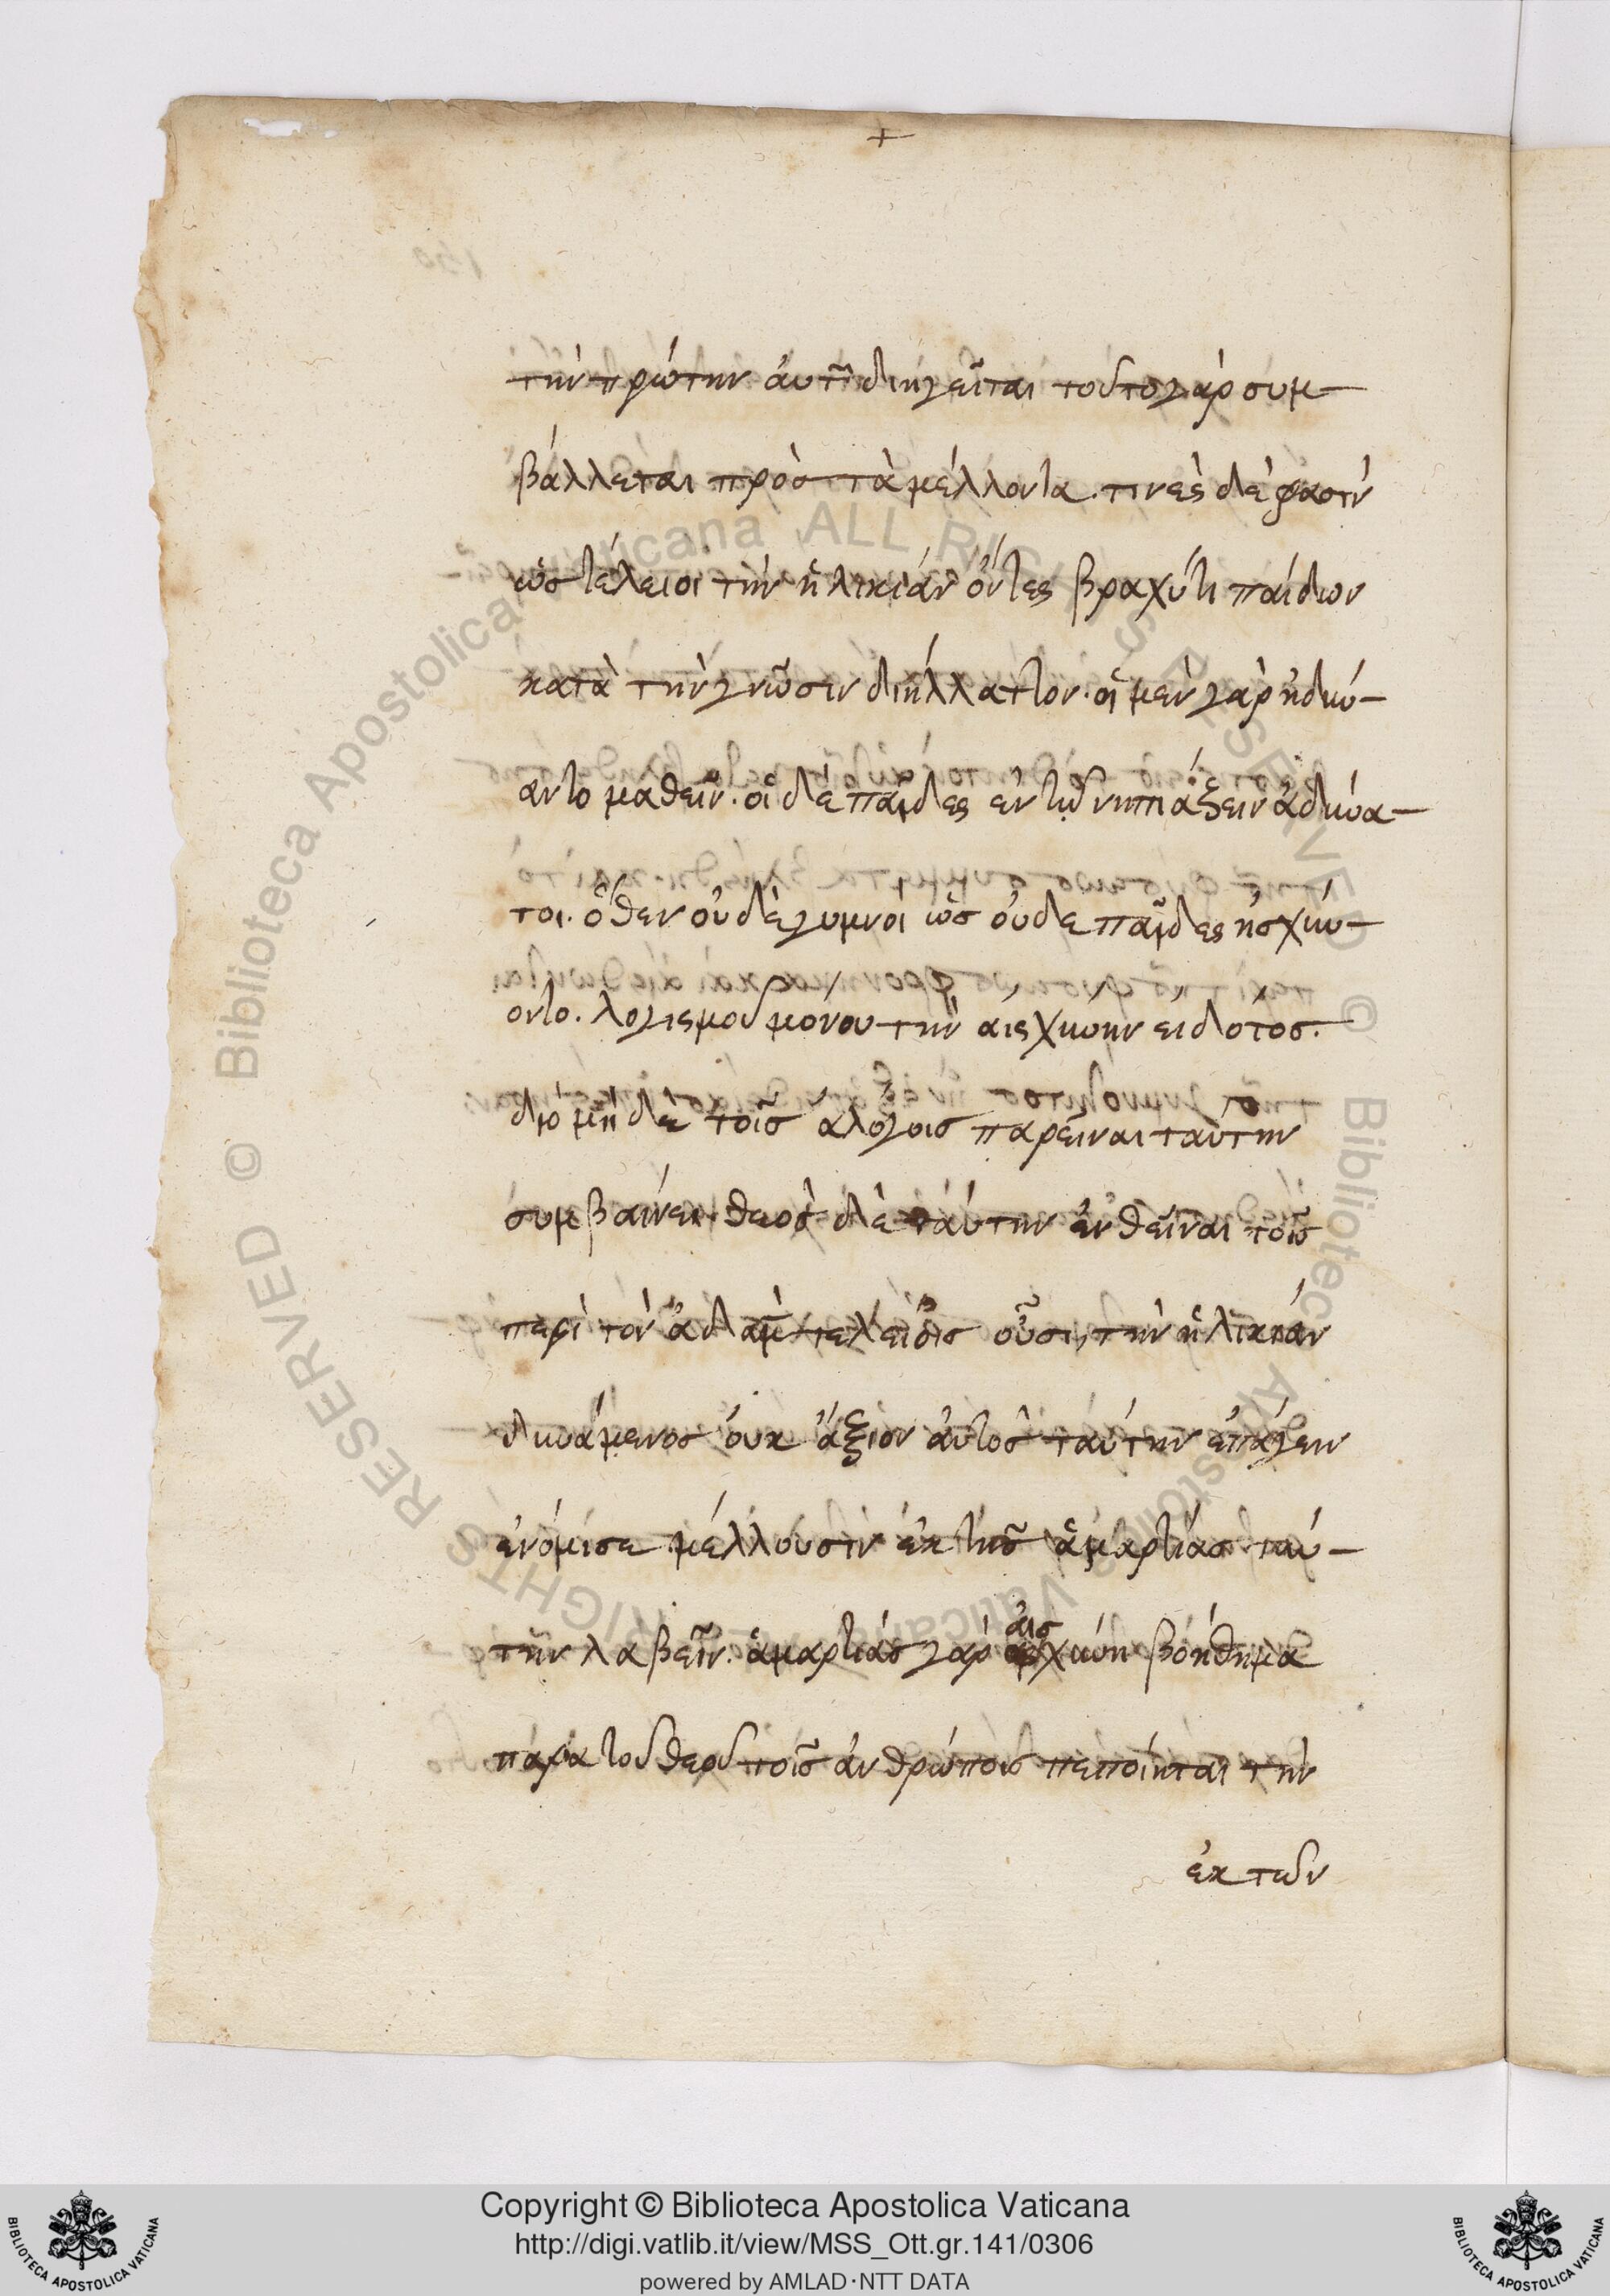 +
τὴν πρώτην ἀυτῆ διηγεῖται τοῦτο γὰρ συμ-
βάλλεται πρὸσ τὰ μέλλοντα. τινὲς δὲ φασὶν
ὡσ τέλειοι τὴν ἡλικίαν ὄντες βραχύτι παίδων
κατὰ τὴν γνῶσιν διήλλαττον. οἱ μὲν γὰρ ἠδύν-
αντο μαθεῖν. οἱ δὲ παῖδες ἐν τῷ νηπιάξειν ἀδύνα-
τοι. ὅθεν οὐδὲ γυμνοὶ ὡσ οὐδε παῖδες ἠσχύν-
οντο. λογισμοῦ μόνου τὴν αἰσχύνην εἰδότοσ.
διὸ μὴ δὲ τοῖσ ἀλόγοισ παρεῖναι ταύτην
συμβαίνει. θεοσ δὲ ταύτην ἐνθεῖναι τοῖσ
περὶ τὸν ἀδὰμ τελείοισ οὖσι, τὴν ἡλικίαν
δυνάμενοσ ὀυκ ἄξιον ἀυτοῖσ ταύτην ἐπάγειν
ἐνόμισε μέλλουσιν ἐκ τῆσ ἁμαρτίασ ταύ-
την λαβεῖν. ἁμαρτίασ γὰρ αἰσχύνη βοήθημα
παρὰ τοῦ θεοῦ τοῖσ ἀνθρώποισ πεποίηται τὴν
ἐκ τῶν
Copyright © Biblioteca Apostolica Vaticana
http://digi.vatlib.it/view/MSS_Ott.gr.141/0306
powered by AMLAD·NTT DATA
BIBLIOTECA APOSTOLICA VATICANA
BIBLIOTECA APOSTOLICA VATICANA
© Biblioteca Apostolica Vaticana ALL RIGHTS RESERVED
© Biblioteca Apostolica Vaticana ALL RIGHTS RESERVED